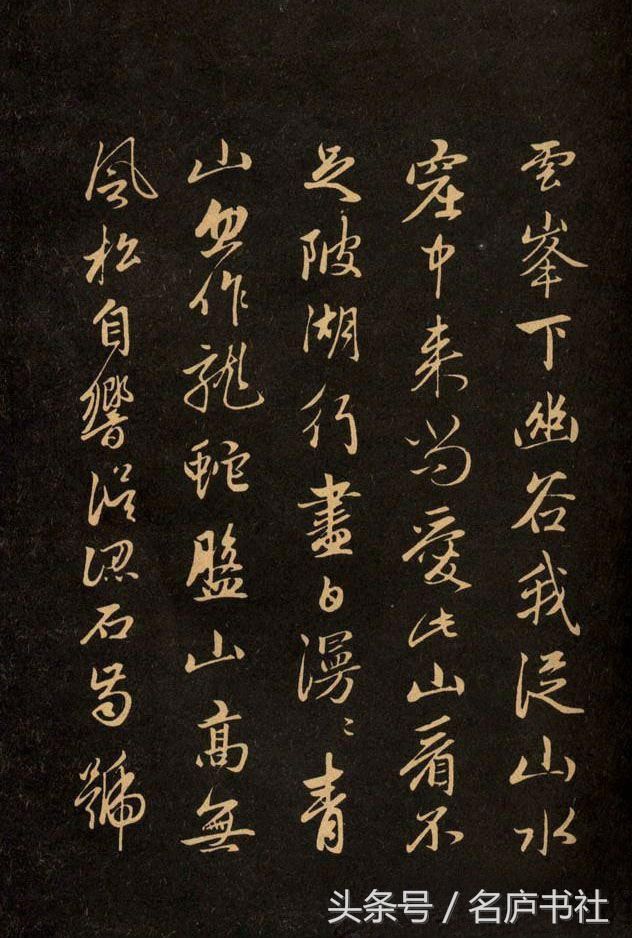 雲峯下幽谷我從山水
窟中來尚愛此山看不
足陂湖行盡白漫〻青
山忽作龍蛇盤山高無
風松自響誤認石齒號
头条号 / 名庐书社